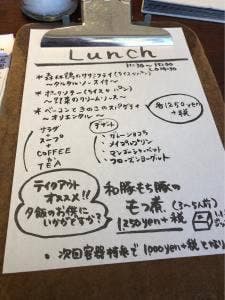 Lunch
11:30 ~ 15:00
* 森林鶏のササミフライ (ライス or パン)
~タルタルソース付~
* ポークソテー (ライス or パン)
~野菜のクリームソース~
* ベーコンときのこのスパゲティ
~オリエンタル~
各1250yen
+税
サラダ
+
スープ
+
COFFEE
or
TEA
デザート
・ガトーショコラ
・メイプルプリン
・マンゴーシャーベット
・フローズンヨーグルト
テイクアウト
オススメ!!
夕飯のお供に
いかがですか?
和豚もち豚の
もつ煮。(3~5人前)
1250yen+税
・次回容器持参で1000yen+税となり